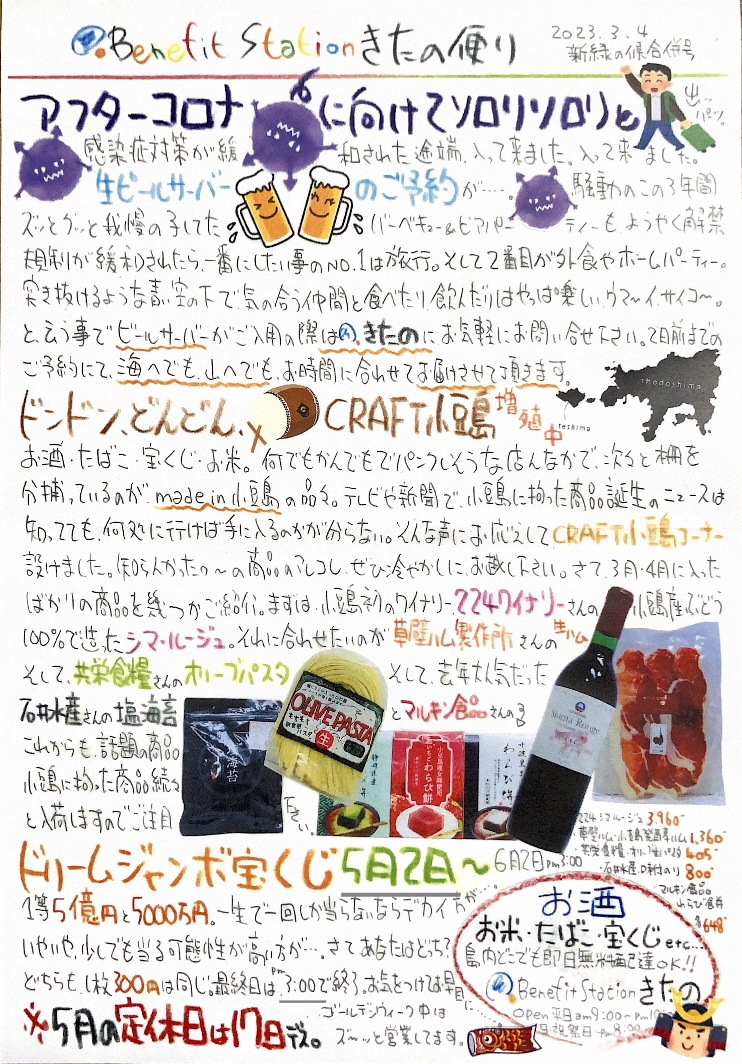 Benefit Stationきたの便り
2023.3.4
新緑の候合併号
アフターコロナに向けてソロリソロリと
出ッパツ。
感染症対策が緩和された途端、入って来ました。入って来ました。
生ビールサーバーのご予約が…。騒動のこの3年間
ズッとグッと我慢の子してたバーベキュー&ビアパーティーもようやく解禁
規制が緩和されたら、一番にしたい事のNO.1は旅行。そして2番目が外食やホームパーティー。
突き抜けるような青い空の下で、気の合う仲間と食べたり、飲んだりはやっぱ楽しい、ウマ〜イ、サイコ〜。
と、云う事でビールサーバーがご入用の際は、きたのにお気軽にお問い合せ下さい。2日前までの
ご予約にて、海へでも、山へでも、お時間に合わせてお届けさせて頂きます。
shodoshima
teshima
ドンドン、どんどん、CRAFT小豆島増殖中
お酒・たばこ・宝くじ・お米。何でもかんでもでパンクしそうな店んなかで、次々と棚を
分捕っているのが、made in 小豆島の品々。テレビや新聞で、小豆島に拘った商品誕生のニュースは
知ってても、何処に行けば手に入るのかが分らない。そんな声にお応えして、CRAFT小豆島コーナー
設けました。知らんかったの〜の商品のアレコレ、ぜひ冷やかしにお越し下さい。さて、3月・4月に入った
ばかりの商品を幾つかご紹介。まずは、小豆島初のワイナリー、224ワイナリーさんの小豆島産ぶどう
100%で造ったシマ・ルージュ。それに合わせたいのが草壁ハム製作所さんの生ハム
そして、共栄食糧さんのオリーブパスタ そして、去年大人気だった
石井水産さんの塩海苔とマルキン食品さんの
これからも、話題の商品
小豆島に拘った商品続々
と入荷しますのでご注目下さい。
OLIVE PASTA
生
海苔
わらび餅
わらび餅
Shima Rouge
224シマルージュ 3,960-
草壁ハム・小豆島発酵ハム 1,360-
共栄食糧・オリーブ生パスタ 405-
石井水産・味付のり 800-
マルキン食品
わらび餅 各648-
ドリームジャンボ宝くじ 5月2日〜6月2日pm3:00
1等5億円と5000万円。一生で一回しか当らないならデカイ方が…。
いやいや、少しでも当る可能性が高い方が…。さてあなたはどっち?
どちらも、1枚300円は同じ。最終日はpm3:00で終了。お気をつけてお早目に…
※5月の定休日は17日デス。
ゴールデンウィーク中は
ズ〜ッと営業してます。
お酒
お米・たばこ・宝くじetc…
島内どこでも即日無料配達OK!!
Benefit Stationきたの
Open 平日am9:00〜pm10:00
日・祝祭日〜pm8:00